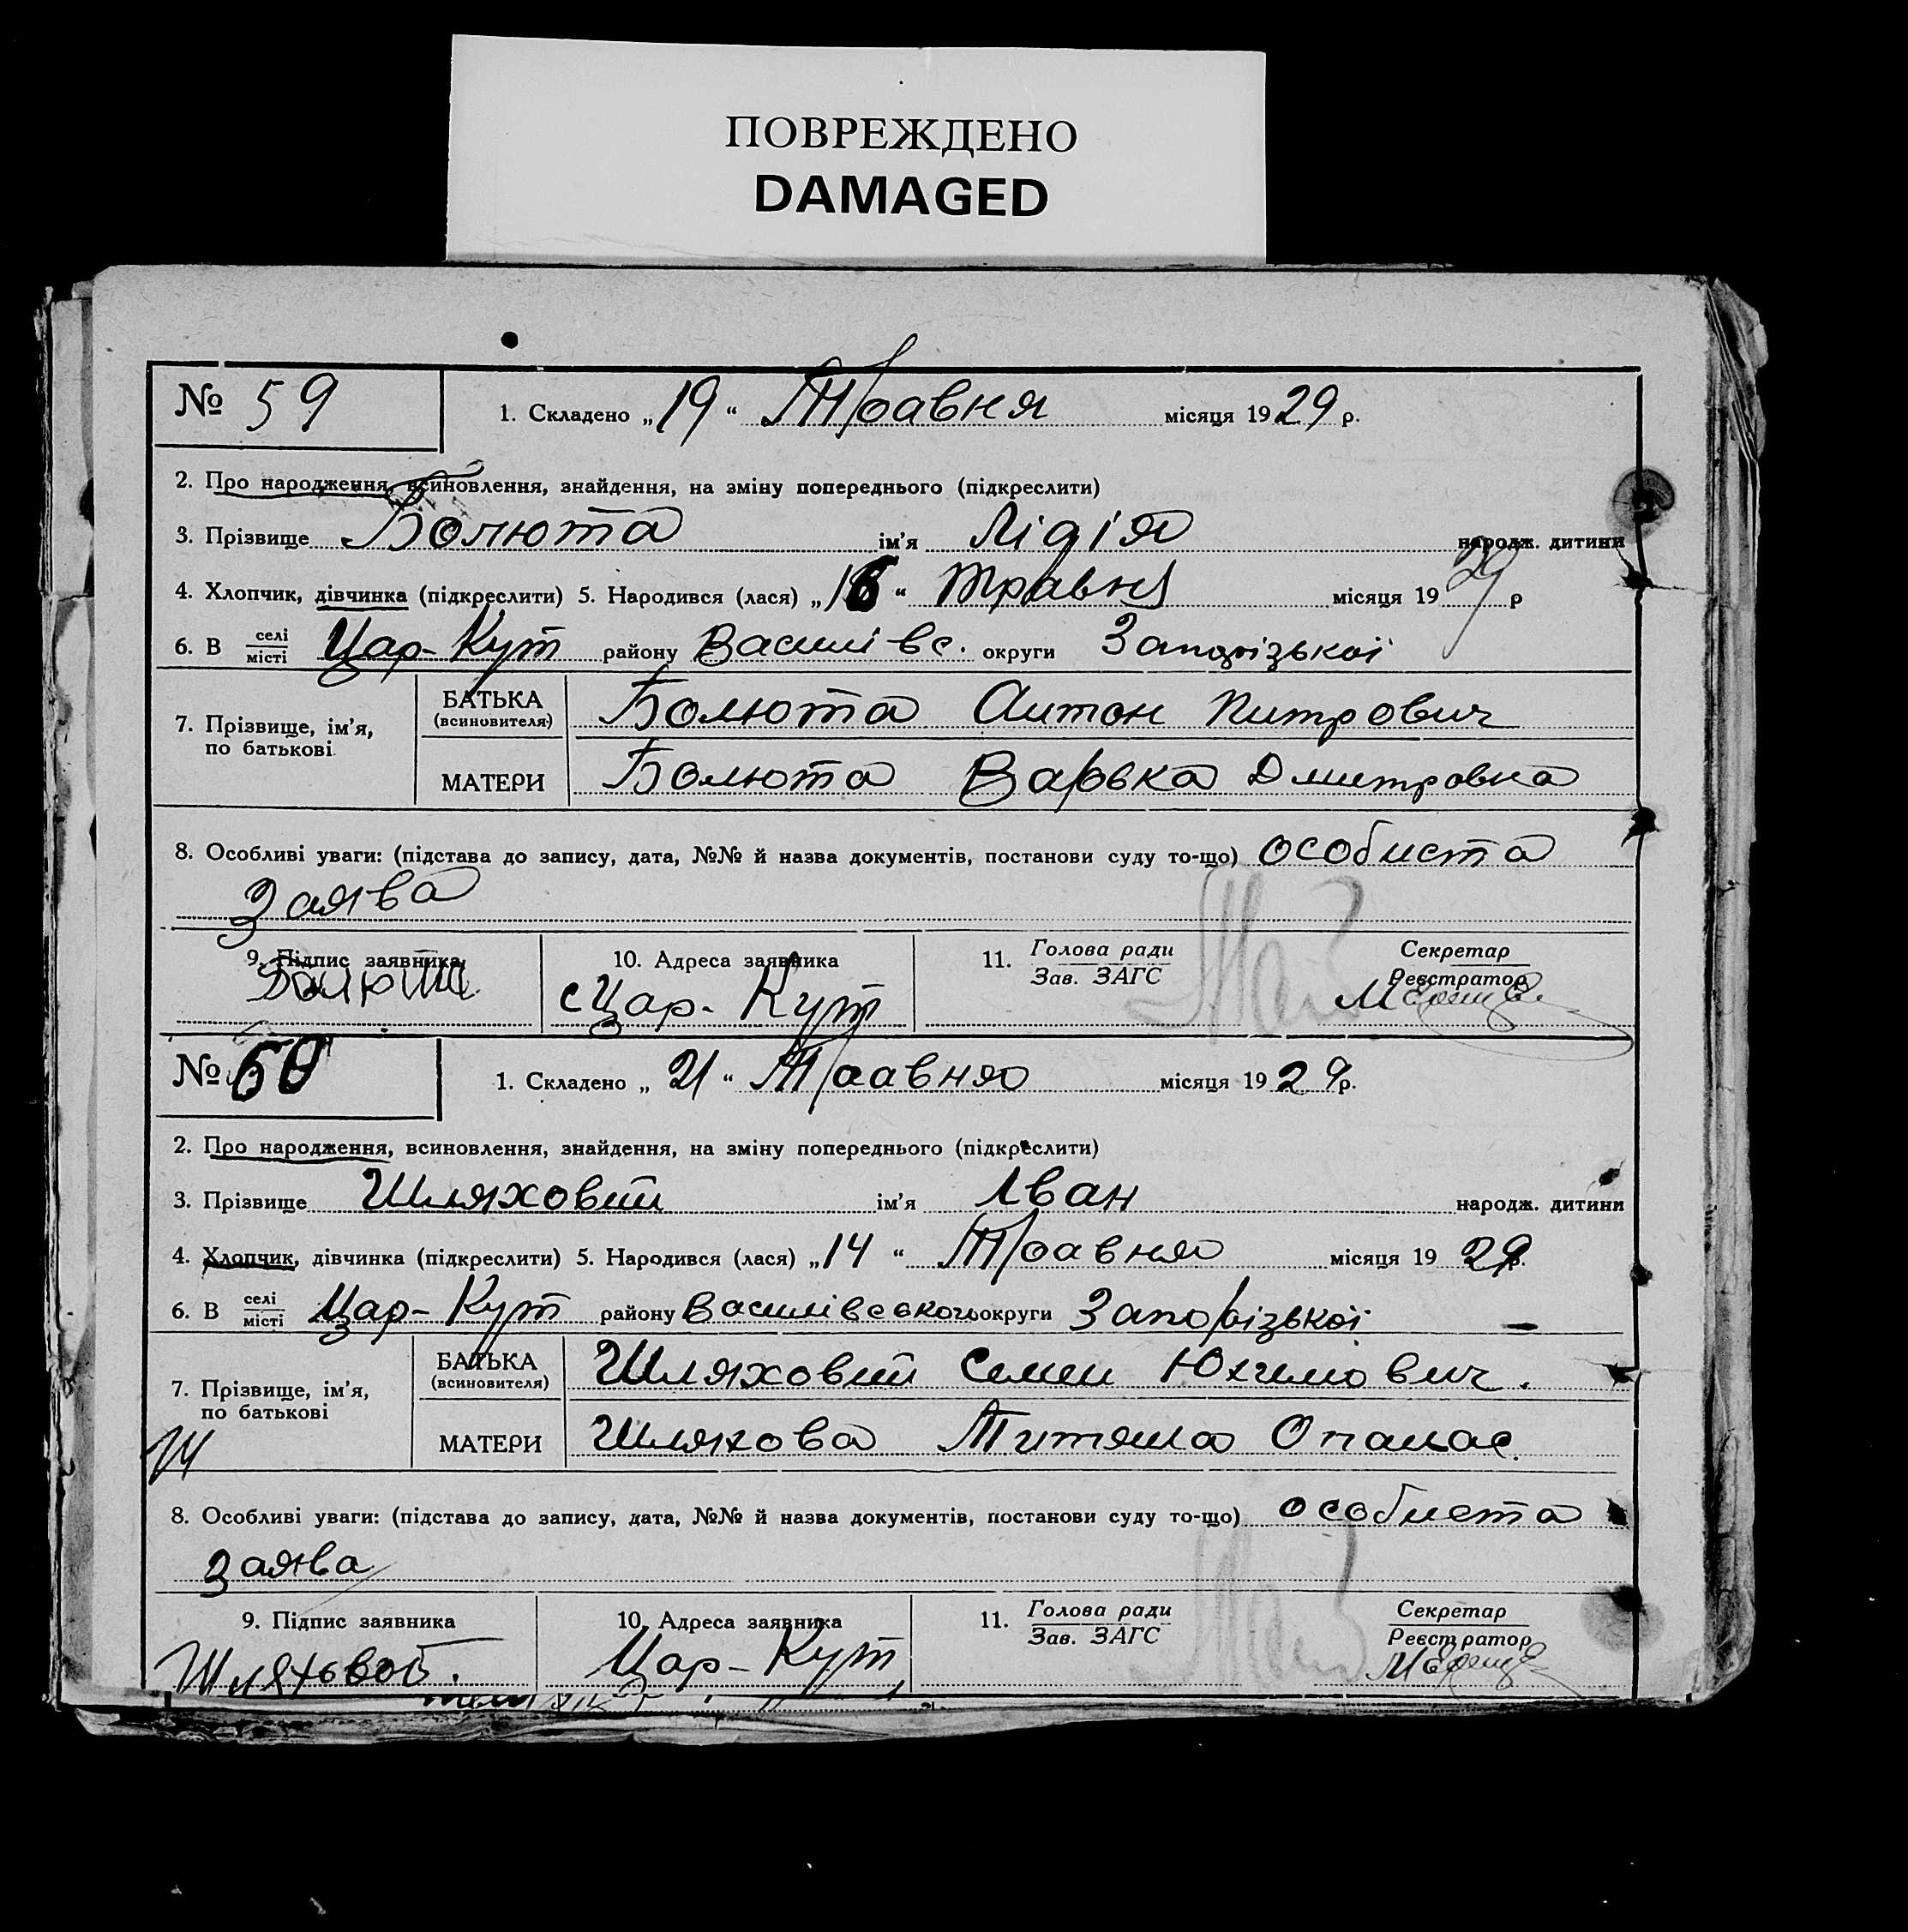 ПОВРЕЖДЕНО
DAMAGED
№ 59
1. Складено „19“ Травня місяця 1929 р.
2. Про народження, всиновлення, знайдення, на зміну попереднього (підкреслити)
3. Прізвище Болюта ім'я Лідія народж. дитини
4. Хлопчик, дівчинка (підкреслити) 5. Народився (лася) „16“ травня місяця 1929 р
6. В селі/місті Цар-Кут району Василівс. округи Запорізької
7. Прізвище, ім'я, по батькові
БАТЬКА (всиновителя) Болюта Антон Питрович
МАТЕРИ Болюта Варька Дмитровна
8. Особливі уваги: (підстава до запису, дата, №№ й назва документів, постанови суду то-що) особиста
заява
9. Підпис заявника 10. Адреса заявника 11. Голова ради Секретар
Зав. ЗАГС Реєстратор
Болюта с Цар-Кут
№ 60
1. Складено „21“ Травня місяця 1929р.
2. Про народження, всиновлення, знайдення, на зміну попереднього (підкреслити)
3. Прізвище Шляховий ім'я Іван народж. дитини
4. Хлопчик, дівчинка (підкреслити) 5. Народився (лася) „14“ Травня місяця 1929р.
6. В селі/місті Цар-Кут району Василівського округи Запорізької
7. Прізвище, ім'я, по батькові
БАТЬКА (всиновителя) Шляховий Семен Юхимович.
МАТЕРИ Шляхова Титяна Опанас.
Ш
8. Особливі уваги: (підстава до запису, дата, №№ й назва документів, постанови суду то-що) особиста
заява
9. Підпис заявника 10. Адреса заявника 11. Голова ради Секретар
Зав. ЗАГС Реєстратор
Шляховой. Цар-Кут